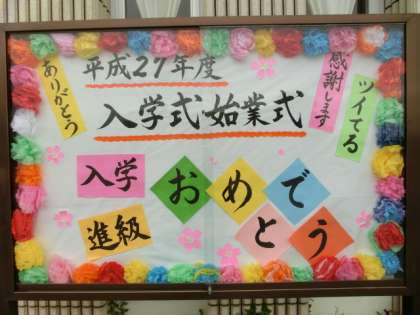 平成27年度
入学式始業式
ありがとう
感謝します
ツイてる
入学
進級
おめで
とう